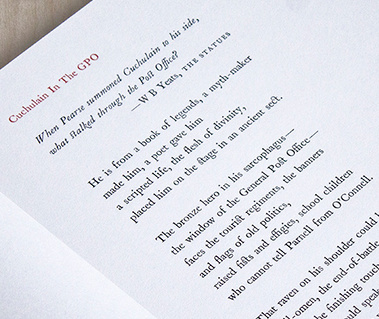 Cuchulain In The GPO
When Pearse summoned Cuchulain to his side,
what stalked through the Post Office?
—W B Yeats, THE STATUES
He is from a book of legends, a myth-maker
made him, a poet gave him
a scripted life, the flesh of divinity,
placed him on the stage in an ancient sect.
The bronze hero in his sarcophagus—
the window of the General Post Office—
faces the tourist regiments, the banners
and flags of old politics,
raised fists and effigies, school children
who cannot tell Parnell from O'Connell.
That raven on his shoulder could
-omen, the end-of-battle
the finishing touch
could speak